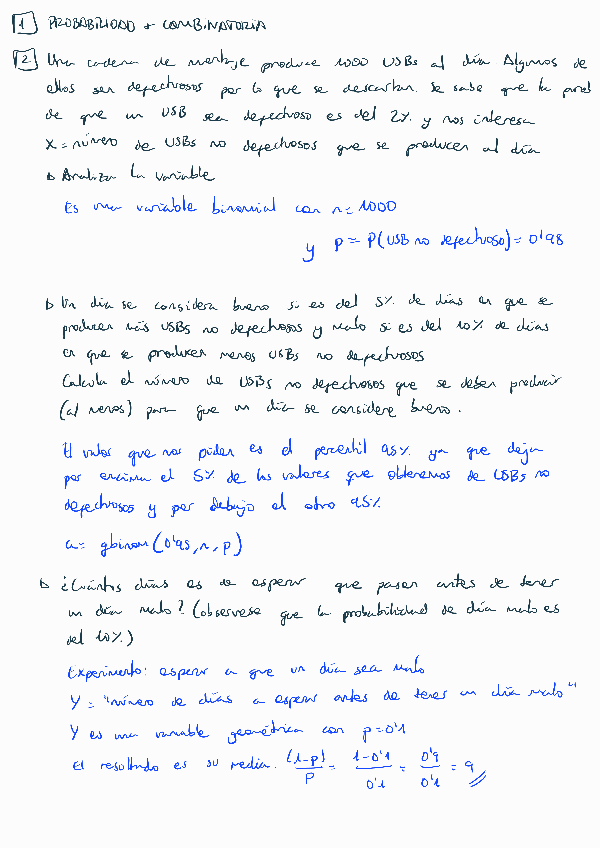 1 PROBABILIDAD + COMBINATORIA
2 Una cadena de montaje produce 1000 USBs al día Algunos de
ellos son defectuosos por lo que se descartan. Se sabe que la prob
de que un USB sea defectuoso es del 2% y nos interesa
X = número de USBs no defectuosos que se producen al día
▷ Analiza la variable
Es una variable binomial con n = 1000
y p = P(USB no defectuoso) = 0'98
▷ Un día se considera bueno si es del 5% de días en que se
producen más USBs no defectuosos y malo si es del 10% de días
en que se producen menos USBs no defectuosos
Calcula el número de USBs no defectuosos que se deben producir
(al menos) para que un día se considere bueno.
El valor que nos piden es el percentil 95% ya que deja
por encima el 5% de los valores que obtenemos de USBs no
defectuosos y por debajo el otro 95%
a = qbinom(0'95, n, p)
▷ ¿Cuántos días es de esperar que pasen antes de tener
un día malo? (obsérvese que la probabilidad de día malo es
del 10%)
Experimento: esperar a que un día sea malo
Y = "número de días a esperar antes de tener un día malo"
Y es una variable geométrica con p = 0'1
El resultado es su media. (1-p)/p = 1-0'1/0'1 = 0'9/0'1 = 9